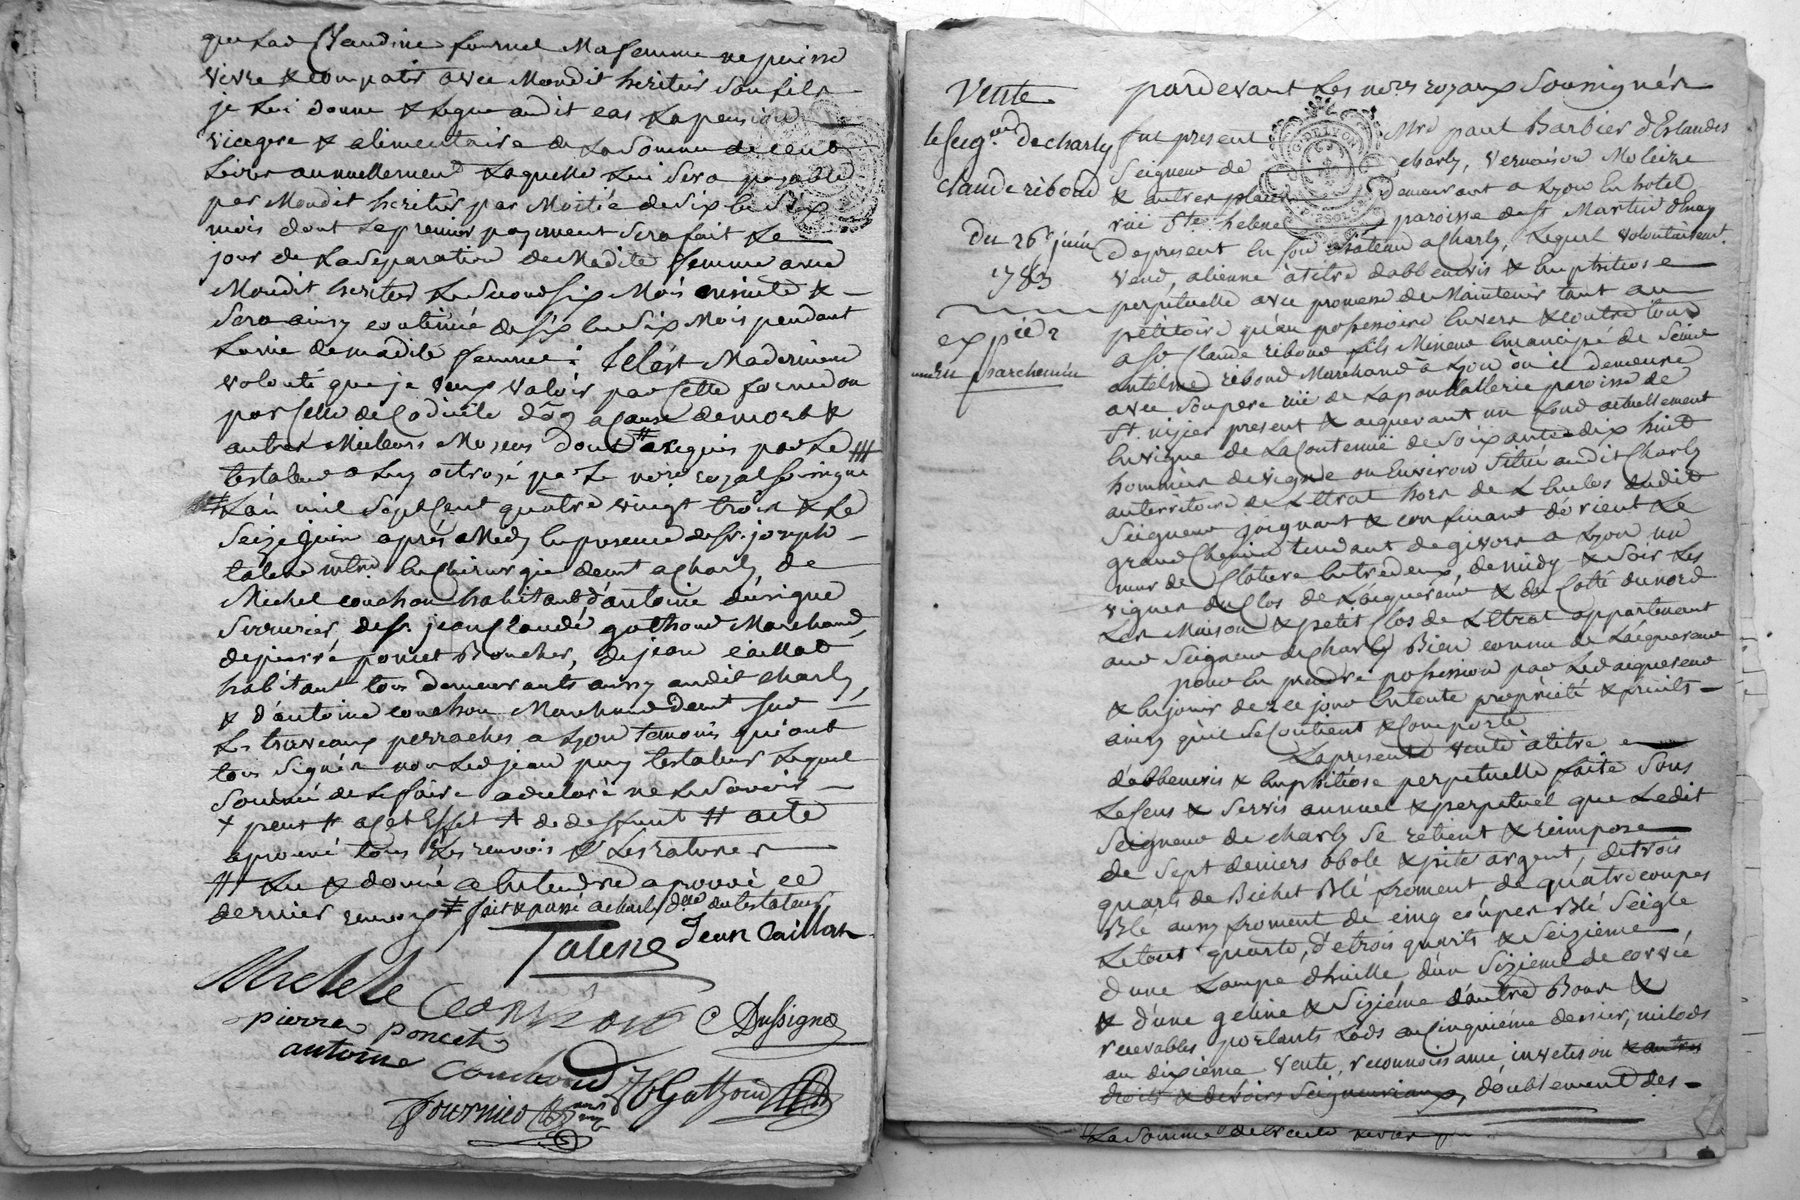 que lad Claudine fournel Ma femme ne puisse
vivre & compatir avec Mondit heritier Son fils
je Lui donne & Legue audit cas La pension
viagere & alimentaire de La Somme de cent
Livres annuellement Laquelle Lui Sera payable
par Mondit heritier par Moitié de Six en Six
mois dont Le premier payement Sera fait Le
jour de La Separation de Madite femme avec
Mondit heritier Le Second Six Mois ensuite &
Sera ainsy continué de Six en Six Mois pendant
La vie de madite femme : telle est Ma derniere
volonté que je veux valoir par cette forme ou
par celle de Codicile dãon a cause de mort &
autres Meilleurs Moyens dont # acte requis par Le
testateur a luy octroyé par Le nore royal Soussigné ###
L'an mil Sept Cent quatre vingt trois & Le
Seize juin après Midy en presence de Sr. joseph
talene mtre en Chirurgie demt a Charly de
Michel couchou habitant d'antoine dusigne
Serrurier, de Sr. jean Claude gathoud Marchand,
de pierre poncet Boucher, de jean caillot
habitant tous demeurants aussy audit charly,
& d'antoine couchou Marchand demt sur
Les travaux perraches a Lyon temoins qui ont
tous Signés non Led jean puy testateur Lequel
Sommé de Le faire a declaré ne Le Savoir
& peut # a cet Effet + de deffunt # acte
aprouvé tous Les renvois & Les ratures
# Lu & donné a Entendre aprouvé ce
dernier renvoy # fait & passé a charly dlle du testateur
Talene Jean Caillot
Michel Couchoud C Dusigne
pierre poncet
antoine Couchoud JC Gathoud
fournier
Vente
le Seigr. de charly
claude riboud
Du 26e juin
1783
expiée
en parchemin
pardevant Les nores royaux Soussignés
fut present Mre paul Barbier d'Erlandes
Seigneur de charly, vernaison Moleize
& autres places demeurant a Lyon En hotel
rüe Ste. helene paroisse de St Martin d'Enay
de present En Son château a Charly, Lequel volontairemt.
vend, alienne à titre d'abbenevis & Emphiteose
perpetuelle avec promesse de Maintenir tant au
petitoire qu'au possessoire Envers & contre tous
a Sr Claude riboud fils Mineur Emancipé de Sieur
antelme riboud Marchand à Lyon ou il demeure
avec Son pere rüe de La poulaillerie paroisse de
St. nizier present & acquerant un fond actuellement
En vigne de La Contenüe de Soixante dix huit
hommées de vigne ou Environ Situé audit Charly
au territoire de Letrat hors de L'Enclos dudit
Seigneur joignant & confinant d'orient Le
grand Chemin tendant de givors a Lyon un
mur de Cloture Entre deux, de midy & Soir Les
vignes du Clos de L'acquereur & du Coté du nord
Les Maison & petit Clos de Letrat appartenant
aud Seigneur de Charly Bien connu de L'acquereur
pour En prendre possession par Led acquereur
& En jouir de ce jour En toute proprieté & fruits
ainsy qu'il Se Contient & Comporte
La presente vente à titre
d'abbenevis & Emphitéose perpetuelle faite Sous
Le Cens & Servis annuel & perpetuel que Ledit
Seigneur de charly Se retient & reimpose
de Sept deniers obole & pite argent, de trois
quarts de Bichet Blé froment de quatre coupes
Blé aussy froment de cinq coupes Blé Seigle
Le tout quarte, de trois quarts & Seizieme
d'une Lampe d'huille, d'un Sixieme de corvée
& d'une geline & Sixieme d'autre Bons &
recevables portants Lods au Cinquiéme denier, milods
au dixieme vente, reconnoissance investison & autres
droits & devoirs Seigneuriaux, doublement des
La Somme de